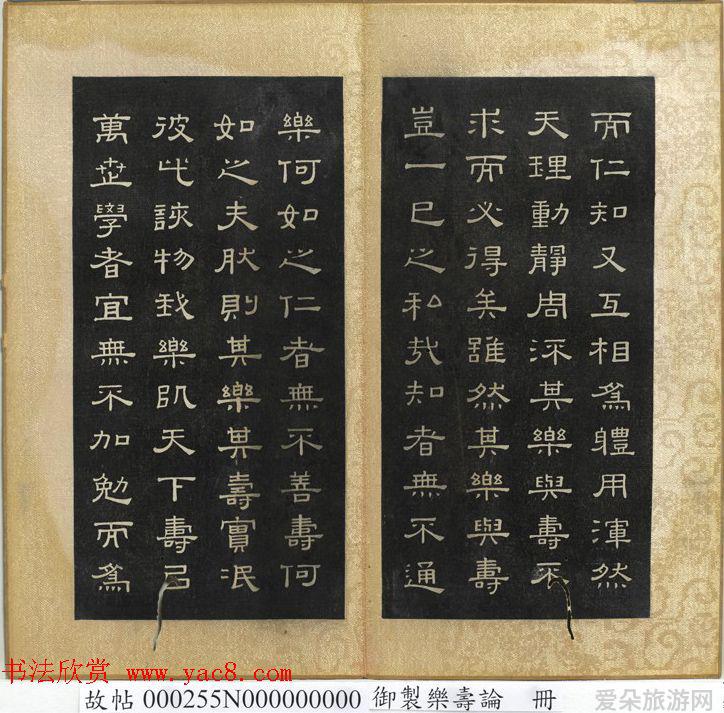 而仁知又互相為體用渾然
天理動靜周流其樂與壽不
求而必得矣雖然其樂與壽
豈一己之私哉知者無不通
樂何如之仁者無不善壽何
如之夫肰則其樂其壽實泯
彼此該物我樂以天下壽以
萬世學者宜無不加勉而為
书法欣赏 www.yac8.com
故帖 000255N000000000 御製樂壽論 冊
爱朵旅游网